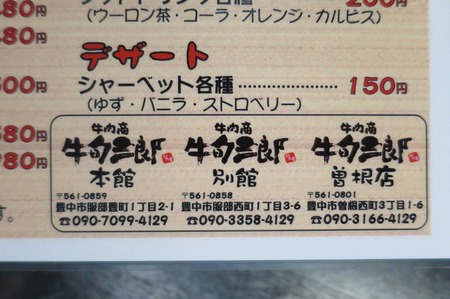 200円
(ウーロン茶・コーラ・オレンジ・カルピス)
480円
デザート
シャーベット各種 150円
(ゆず・バニラ・ストロベリー)
牛肉商
牛旬三郎
本館
〒561-0859
豊中市服部豊町1丁目2-1
☎090-7099-4129
牛肉商
牛旬三郎
別館
〒561-0858
豊中市服部西町1丁目3-6
☎090-3358-4129
牛肉商
牛旬三郎
曽根店
〒561-0801
豊中市曽根西町3丁目1-6
☎090-3166-4129
す。